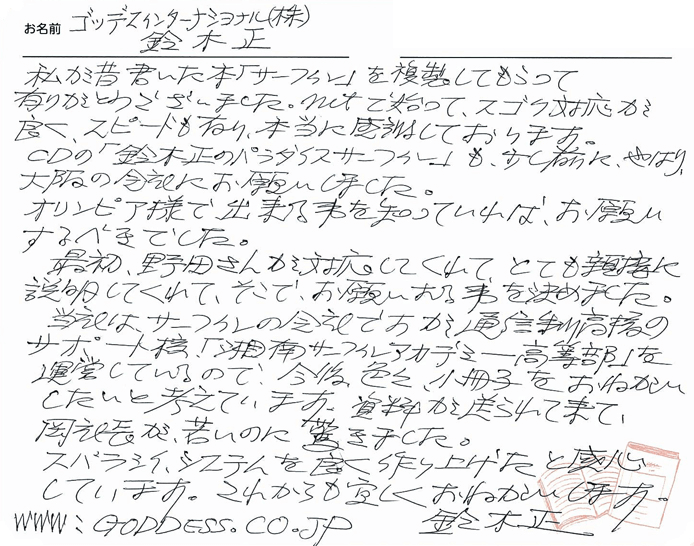 お名前 ゴッデスインターナショナル(株)
鈴木正
私が昔書いた本「サーフィン」を複製してもらって
有りがとうございました。netで知って、スゴク対応が
良く、スピードも有り、本当に感謝しております。
CDの「鈴木正のパラダイスサーフィン」も、少し前に、やはり、
大阪の会社にお願いしました。
オリンピア様で出来る事を知っていれば、お願い
するべきでした。
最初、野田さんが対応してくれて、とても親切に
説明してくれて、そこで、お願いする事を決めました。
当社は、サーフィンの会社ですが通信制高校の
サポート校「湘南サーフィンアカデミー高等部」を
運営しているので、今後色々、小冊子をおねがい
したいと考えています。資料が送られて来て、
岡社長が、若いのに驚きました。
スバラシイ、システムを良く作り上げたと感心
しています。これからも宜しくおねがいします。
WWW:GODDESS.CO.JP 鈴木正